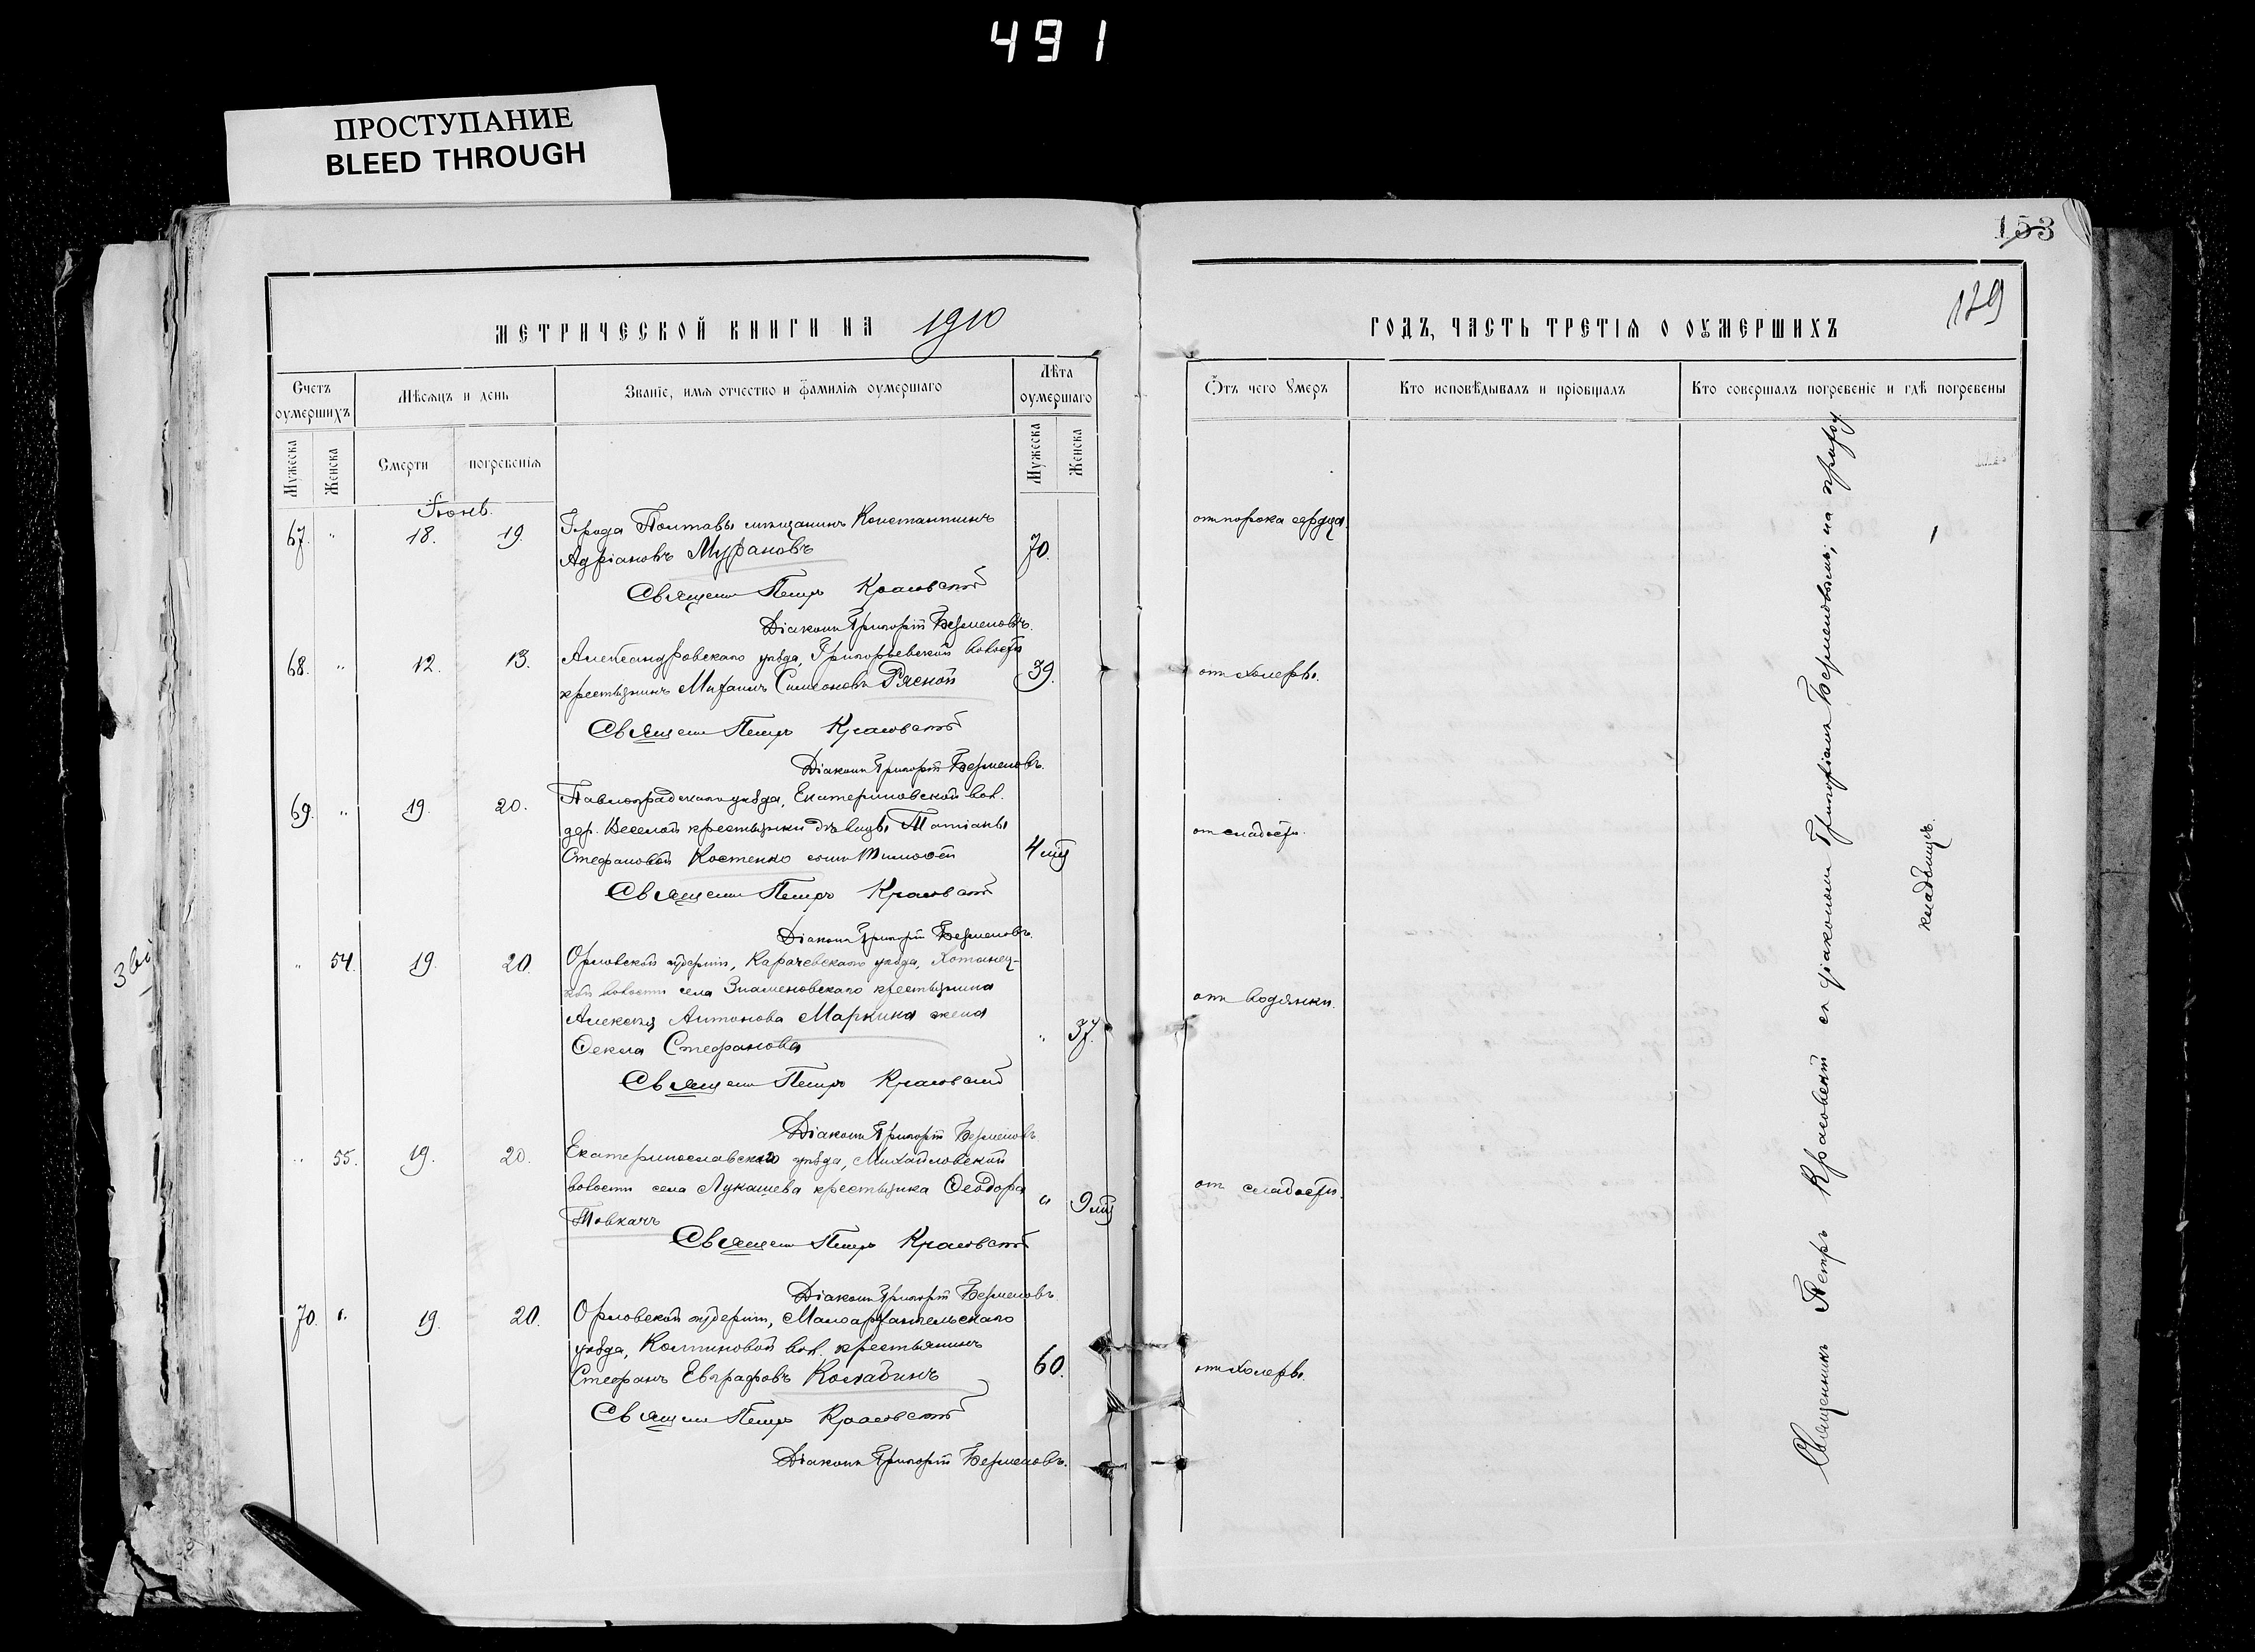 491
ПРОСТУПАНИЕ
BLEED THROUGH
153
129
МЕТРИЧЕСКОЙ КНИГИ НА 1910
ГОДЪ, ЧАСТЬ ТРЕТІЯ О ОУМЕРШИХЪ
Счетъ оумершихъ
Мѣсяцъ и день
Званіе, имя отчество и фамилія оумершаго
Лѣта оумершаго
Отъ чего умеръ
Кто исповѣдывалъ и пріобщалъ
Кто совершалъ погребеніе и гдѣ погребены
Мужеска
Женска
Смерти
погребенія
Мужеска
Женска
Іюнь.
67. " 18. 19. Города Полтавы мѣщанинъ Константинъ
Адріановъ Мурановъ 70. от порока сердца.
Священ Петръ Красовскій
Діаконъ Григорій Безменовъ.
68. " 12. 13. Александровскаго уѣзда, Григорьевской волости
крестьянинъ Михаилъ Симеоновъ Рясной 39. от холеры.
Священ Петръ Красовскій
Діаконъ Григорій Безменовъ.
69. " 19. 20. Павлоградскаго уѣзда, Екатериновской вол.
дер. Веселой крестьянки дѣвицы Татіаны
Стефановой Костенко сынъ Тимоѳей 4 мѣс от слабости.
Священ Петръ Красовскій
Діаконъ Григорій Безменовъ.
" 54. 19. 20. Орловской губерніи, Карачевскаго уѣзда, Хотинец-
кой волости села Знаменовскаго крестьянина
Алексѣя Антонова Маркина жена
Ѳекла Стефанова " 37. от водянки.
Священ Петръ Красовскій
Діаконъ Григорій Безменовъ.
" 55. 19. 20. Екатеринославскаго уѣзда, Михайловской
волости села Лукашева крестьянка Ѳеодора
Товкачъ " 9 мѣс от слабости.
Священ Петръ Красовскій
Діаконъ Григорій Безменовъ.
70. " 19. 20. Орловской губерніи, Малоархангельскаго
уѣзда, вол. крестьянинъ
Стефанъ Евграфовъ 60. от холеры.
Священ Петръ Красовскій
Діаконъ Григорій Безменовъ.
Священникъ Петръ Красовскій съ діакономъ Григоріемъ Безменовымъ; на приход
кладбищѣ.